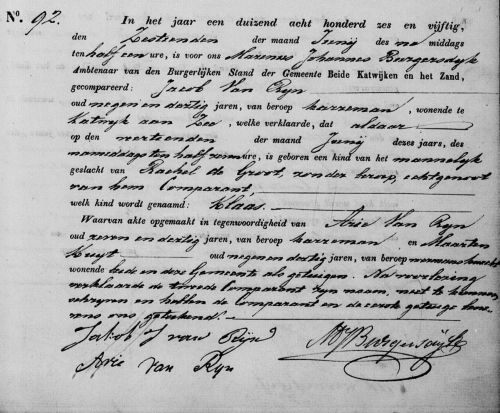 N.º 92. In het jaar een duizend acht honderd zes en vijftig,
den Zestienden der maand Junij des na middags
ten half een ure, is voor ons Marenus Johannes Burgersdyk
Ambtenaar van den Burgerlijken Stand der Gemeente Beide Katwijken en het Zand,
gecompareerd: Jacob Van Ryn
oud negen en dertig jaren, van beroep karreman, wonende te
Katwyk aan Zee, welke verklaarde, dat aldaar
op den veertienden der maand Junij dezes jaars, des
namiddags ten half ure, is geboren een kind van het mannelyk
geslacht van Rachel de Groot, zonder beroep, echtgenoot
van hem Comparant,
welk kind wordt genaamd: Klaas.
Waarvan akte opgemaakt in tegenwoordigheid van Arie Van Ryn
oud zeven en dertig jaren, van beroep karreman en Maarten
Kuyt oud negen en dertig jaren, van beroep
wonende beide en deze Gemeente als getuigen. Na voorlezing
verklaarde de tweede Comparant zyn naam niet te kunnen
schryven en hebben de Comparant en de eerste getuige
ons geteekend.
Jakob J van Rijn MJBurgersdijk
Arie van Ryn